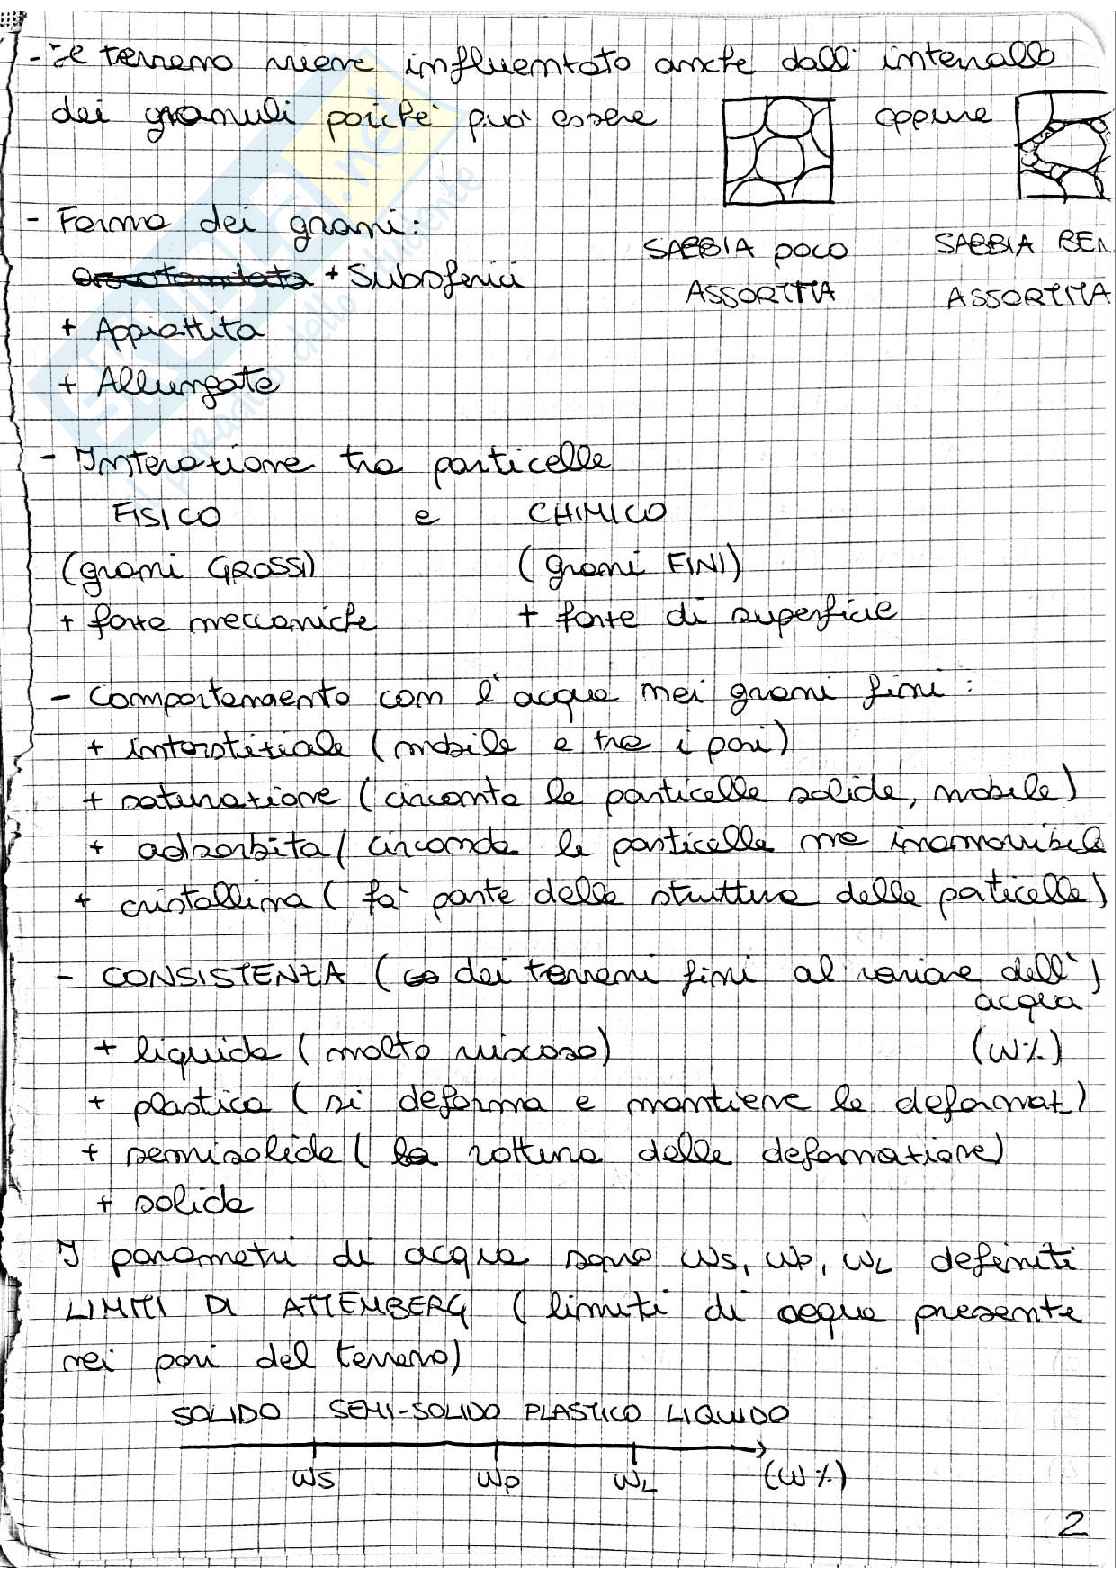 - Il terreno viene influentato anche dall' intervallo
dei granuli poiché può essere oppure
SABBIA POCO ASSORTITA
SABBIA BEN ASSORTITA
- Forma dei grani:
+ Subsferici
+ Appiattita
+ Allungata
- Interazione tra particelle
FISICO e CHIMICO
(grani GROSSI) (grani FINI)
+ forze meccaniche + forze di superficie
- Comportamento con l'acqua nei grani fini:
+ interstiziale (mobile e tra i pori)
+ saturazione (circonda le particelle solide, mobile)
+ adsorbita (circonda le particelle ma inamovibile
+ cristallina (fa' parte della struttura delle paticelle)
- CONSISTENZA (dei terreni fini al variare dell')
acqua
+ liquida (molto viscoso) (W%)
+ plastica (si deforma e mantiene la deformaz)
+ semisolida (rottura della deformazione)
+ solida
I parametri di acqua sono Ws, Wp, WL definiti
LIMITI DI ATTEMBERG (limiti di acqua presente
nei pori del terreno)
SOLIDO SEMI-SOLIDO PLASTICO LIQUIDO
WS WP WL (W%)
2